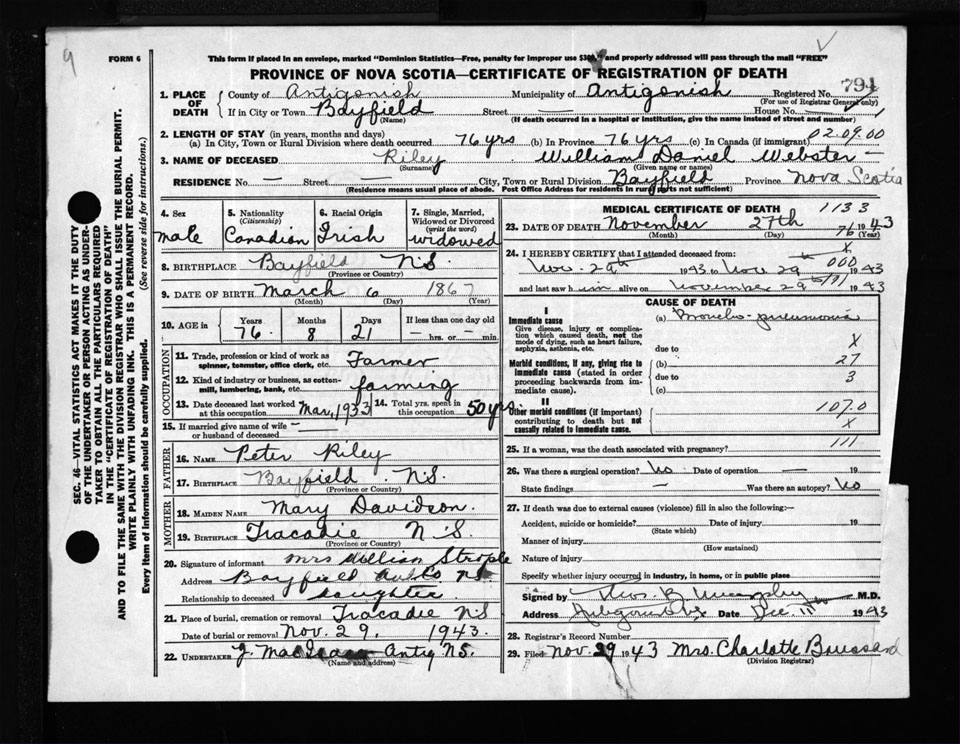 9
FORM 6
This form if placed in an envelope, marked "Dominion Statistics—Free, penalty for improper use $300," and properly addressed will pass through the mail "FREE"
PROVINCE OF NOVA SCOTIA—CERTIFICATE OF REGISTRATION OF DEATH
794
1. PLACE OF DEATH
County of Antigonish Municipality of Antigonish Registered No.
(For use of Registrar General only)
If in City or Town Bayfield Street — House No.
(Name) (If death occurred in a hospital or institution, give the name instead of street and number)
2. LENGTH OF STAY (in years, months and days) 02.09.00
(a) In City, Town or Rural Division where death occurred 76 yrs (b) In Province 76 yrs (c) In Canada (if immigrant) —
3. NAME OF DECEASED Riley William Daniel Webster
(Surname) (Given name or names)
RESIDENCE No. — Street — City, Town or Rural Division Bayfield Province Nova Scotia
(Residence means usual place of abode. Post Office Address for residents in rural parts not sufficient)
SEC. 46—VITAL STATISTICS ACT MAKES IT THE DUTY
OF THE UNDERTAKER OR PERSON ACTING AS UNDER-
TAKER TO OBTAIN ALL THE PARTICULARS REQUIRED
IN THE "CERTIFICATE OF REGISTRATION OF DEATH"
AND TO FILE THE SAME WITH THE DIVISION REGISTRAR WHO SHALL ISSUE THE BURIAL PERMIT.
WRITE PLAINLY WITH UNFADING INK. THIS IS A PERMANENT RECORD.
Every item of Information should be carefully supplied. (See reverse side for instructions.)
4. Sex 5. Nationality (Citizenship) 6. Racial Origin 7. Single, Married, Widowed or Divorced (write the word)
male Canadian Irish widowed
8. BIRTHPLACE Bayfield N.S.
(Province or Country)
9. DATE OF BIRTH March 6 1867
(Month) (Day) (Year)
10. AGE in Years Months Days If less than one day old
76 8 21 hrs. or min.
OCCUPATION
11. Trade, profession or kind of work as spinner, teamster, office clerk, etc. Farmer
12. Kind of industry or business, as cotton-mill, lumbering, bank, etc. farming
13. Date deceased last worked at this occupation Mar, 1933 14. Total yrs. spent in this occupation 50 yrs.
15. If married give name of wife or husband of deceased —
FATHER
16. NAME Peter Riley
17. BIRTHPLACE Bayfield N.S.
(Province or Country)
MOTHER
18. MAIDEN NAME Mary Davidson
19. BIRTHPLACE Tracadie N.S.
(Province or Country)
20. Signature of informant Mrs William Strople
Address Bayfield Ant Co NS
Relationship to deceased daughter
21. Place of burial, cremation or removal Tracadie N.S
Date of burial or removal Nov. 29, 1943.
22. UNDERTAKER J. MacIsaac Antig N.S.
(Name and address)
MEDICAL CERTIFICATE OF DEATH 1133
23. DATE OF DEATH November 27th 1943
(Month) (Day) 76 (Year)
24. I HEREBY CERTIFY that I attended deceased from: X
Nov. 29th 1943 to Nov 29 000 1943
and last saw him alive on November 29 1943
CAUSE OF DEATH
I
Immediate cause (a) Broncho-pneumonia
Give disease, injury or complication which caused death, not the mode of dying, such as heart failure, asphyxia, asthenia, etc.
due to X
Morbid conditions, if any, giving rise to immediate cause (stated in order proceeding backwards from immediate cause).
(b) 27
due to 3
(c)
II
Other morbid conditions (if important) contributing to death but not causally related to immediate cause.
107.0
X
25. If a woman, was the death associated with pregnancy? 111
26. Was there a surgical operation? No Date of operation — 19
State findings — Was there an autopsy? No
27. If death was due to external causes (violence) fill in also the following:—
Accident, suicide or homicide? Date of injury 19
(State which)
Manner of injury
(How sustained)
Nature of injury
Specify whether injury occurred in industry, in home, or in public place
Signed by Thos. B Murphy M.D.
Address Antigonish Date Dec. 1943
28. Registrar's Record Number
29. Filed Nov. 29 1943 Mrs. Charlotte Boussard
(Division Registrar)